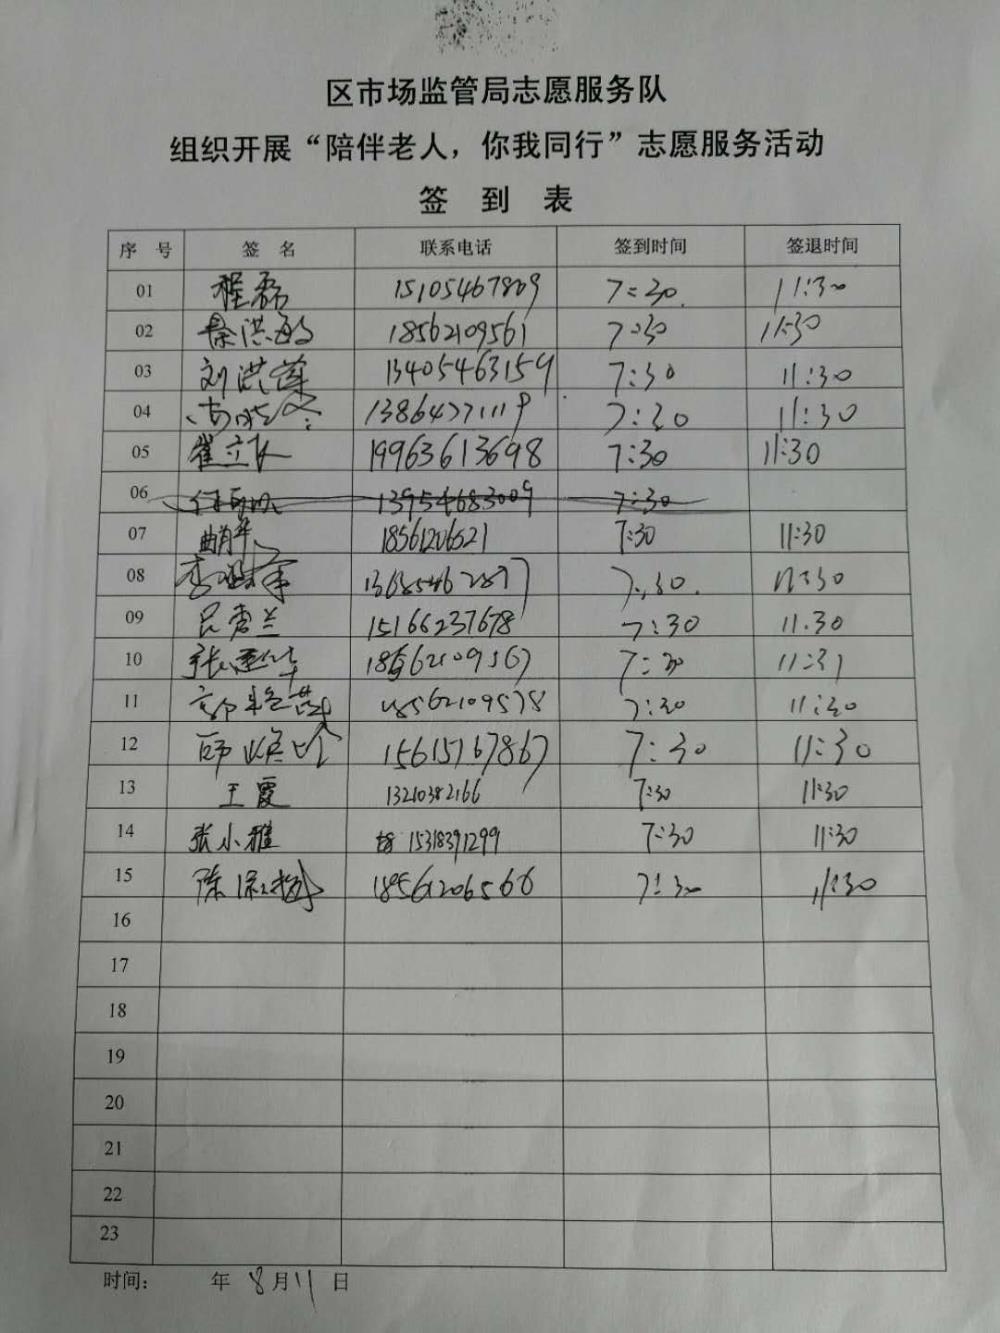 区市场监管局志愿服务队
组织开展“陪伴老人，你我同行”志愿服务活动
签 到 表
序 号 签 名 联系电话 签到时间 签退时间
01 程磊 15105467809 7:30 11:30
02 秦洪 18562109561 7:30 11:30
03 刘洪莲 13405463159 7:30 11:30
04 13864771119 7:30 11:30
05 崔立 19963613698 7:30 11:30
06 13954683009 7:30
07 18561206521 7:30 11:30
08 李 7:30 11:30
09 吕秀兰 15166237678 7:30 11.30
10 张 18562109567 7:30 11:31
11 郭艳 18562109578 7:30 11:30
12 15615167867 7:30 11:30
13 王霞 13210382166 7:30 11:30
14 张小雅 15318391299 7:30 11:30
15 陈 18561206566 7:30 11:30
16
17
18
19
20
21
22
23
时间： 年 8月11日